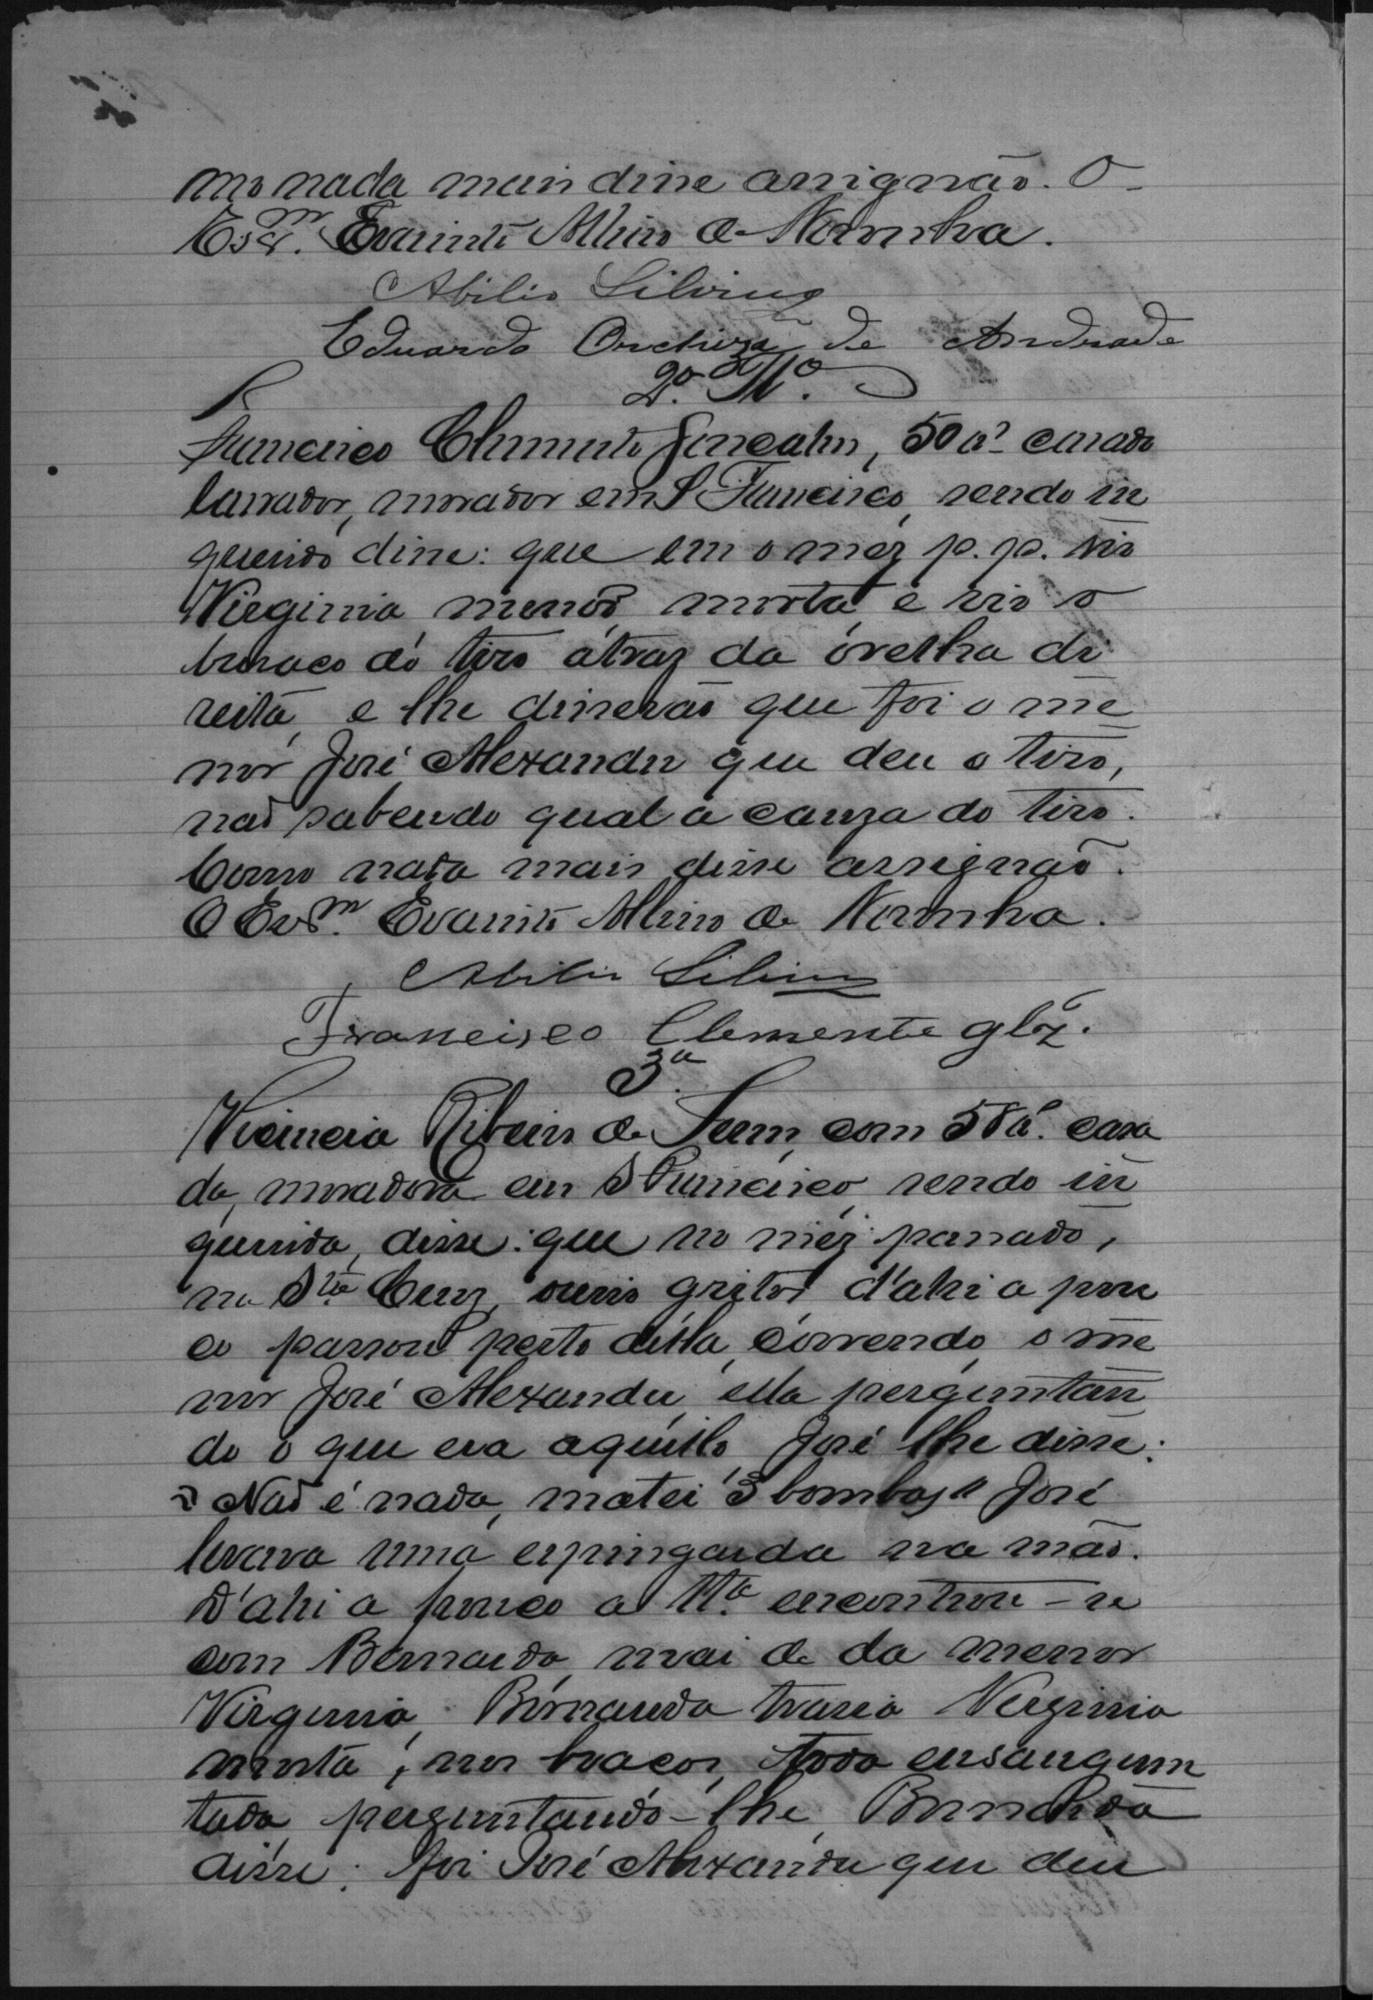 mo nada mais disse assignão. O
Escr.m Evaristo Albino de Noronha.
Abilio Silvino
Eduardo de Andrade
2.a Tt.a
Francisco Clemente Gonçalves, 50 a.s casado
lavrador, morador em S Francisco, sendo in
querido disse: que em o mez p. p. vio
Virginia menor, morta, e vio o
buraco do tiro atraz da orelha di
reita, e lhe disserão que foi o me
nor José Alexandre que deu o tiro,
não sabendo qual a cauza do tiro.
Como nada mais disse assignão.
O Escr.m Evaristo Albino de Noronha.
Abilio Silvino
Francisco Clemente glz.
3.a
Vicencia Ribeiro de, com 58 a. casa
da, moradora em S Francisco, sendo in
querida, disse: que no mez passado,
na S.ta Cruz, ouvio gritos, d'ahi a pou
co passou perto della, correndo, o me
nor José Alexandre, ella perguntan
do o que era aquillo, José lhe disse:
"Não é nada, matei 3 bombas" José
levava uma espingarda na mão.
D'ahi a pouco a Tt.a encontrou-se
com Bernarda, mai de da menor
Virginia, Bernarda trasia Virginia
morta, nos braços, toda ensanguen
tada, perguntando-lhe, Bernarda
disse: foi José Alexandre que deu